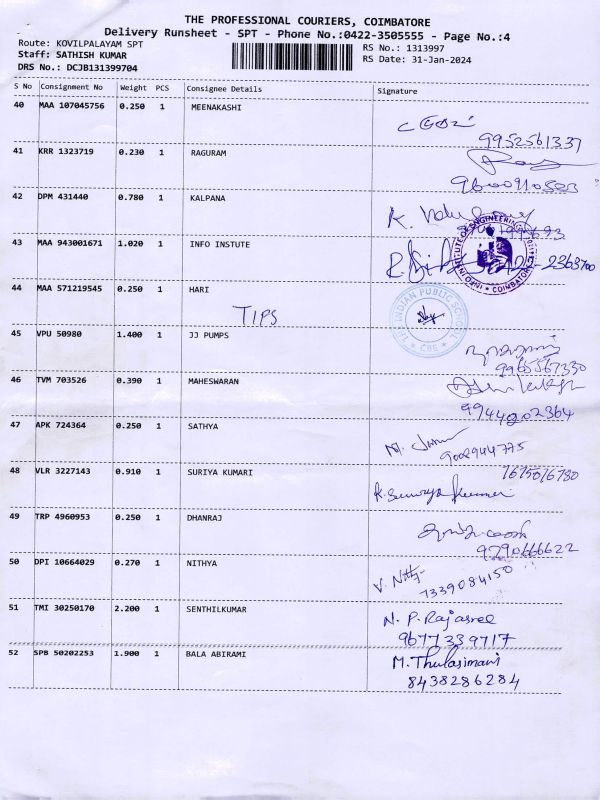 THE PROFESSIONAL COURIERS, COIMBATORE
Delivery Runsheet - SPT - Phone No.:0422-3505555 - Page No.:4
Route: KOVILPALAYAM SPT
Staff: SATHISH KUMAR
DRS No.: DCJB131399704
RS No.: 1313997
RS Date: 31-Jan-2024
S No Consignment No Weight PCS Consignee Details Signature
40 MAA 107045756 0.250 1 MEENAKASHI
9952561337
41 KRR 1323719 0.230 1 RAGURAM
42 DPM 431440 0.780 1 KALPANA
K.
43 MAA 943001671 1.020 1 INFO INSTUTE
INFO INSTITUTE OF ENGINEERING COIMBATORE
2363700
44 MAA 571219545 0.250 1 HARI
TIPS
THE INDIAN PUBLIC SCHOOL CBE
45 VPU 50980 1.400 1 JJ PUMPS
9965567330
46 TVM 703526 0.390 1 MAHESWARAN
9944202364
47 APK 724364 0.250 1 SATHYA
9002944775
48 VLR 3227143 0.910 1 SURIYA KUMARI
R. Suriya Kumari
49 TRP 4960953 0.250 1 DHANRAJ
9790666622
50 DPI 10664029 0.270 1 NITHYA
V. Nithy
7339084150
51 TMI 30250170 2.200 1 SENTHILKUMAR
N. P. Rajasree
9677339717
52 SPB 50202253 1.900 1 BALA ABIRAMI
M. Thulasimani
8438286284